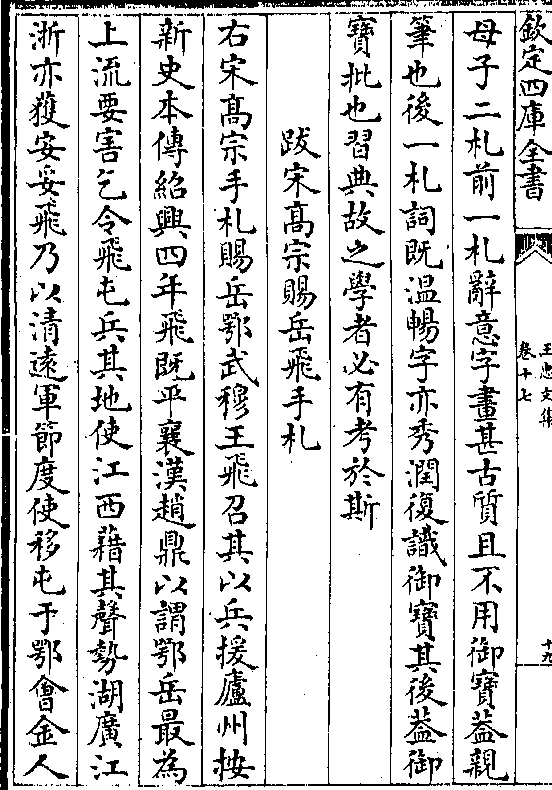 欽定四庫全書
王忠文集
卷十七
十九
母子二札前一札辭意字畫甚古質且不用御寶葢親
筆也後一札詞既溫暢字亦秀潤復識御寶其後葢御
寶批也習典故之學者必有考於斯
跋宋髙宗賜岳飛手札
右宋髙宗手札賜岳鄂武穆王飛召其以兵援廬州按
新史本傳紹興四年飛既平襄漢趙鼎以謂鄂岳最為
上流要害乞令飛屯兵其地使江西藉其聲勢湖廣江
浙亦獲安妥飛乃以清遠軍節度使移屯于鄂會金人